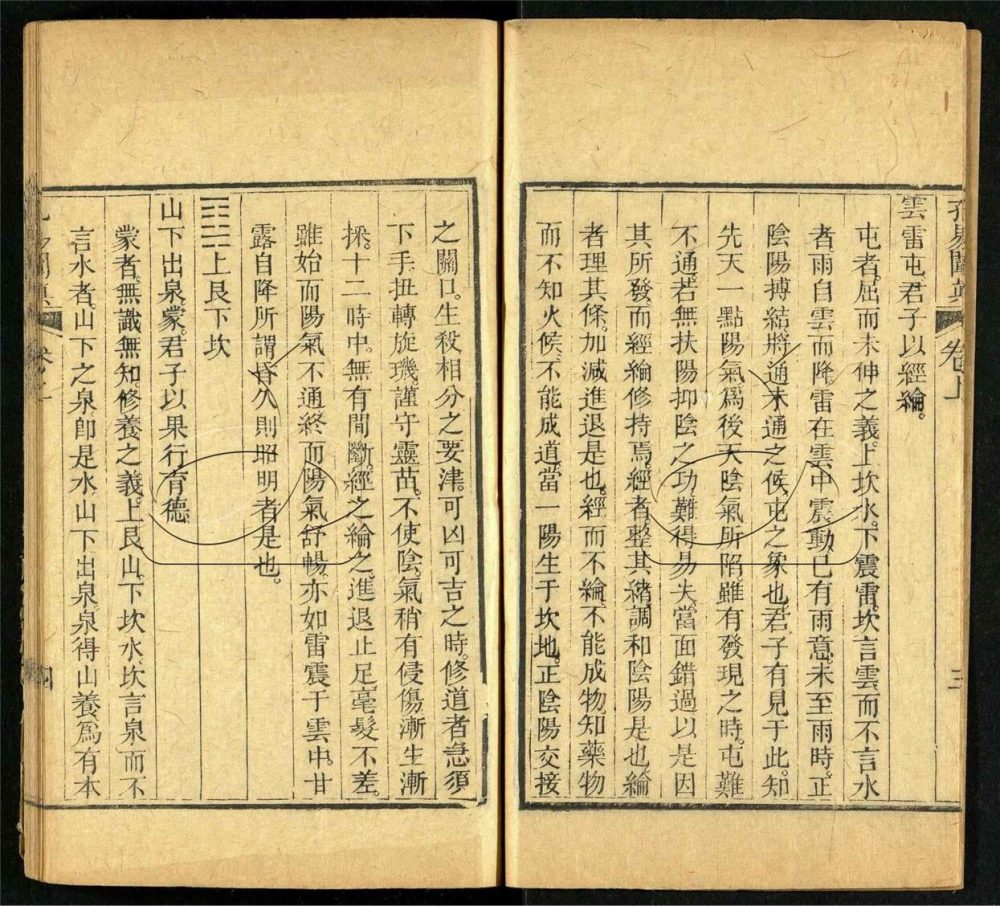 孔易闡真 卷上 三
雲雷屯君子以經綸。
屯者屈而未伸之義上坎水下震雷坎言雲而不言水
者雨自雲而降雷在雲中震動已有雨意未至雨時正
陰陽搏結將通未通之候屯之象也君子有見于此知
先天一點陽氣爲後天陰氣所陷雖有發現之時屯難
不通若無扶陽抑陰之功難得易失當面錯過以是因
其所發而經綸修持焉經者整其緒調和陰陽是也綸
者理其條加減進退是也經而不綸不能成物知藥物
而不知火候不能成道當一陽生于坎地正陰陽交接
之關口。生殺相分之要津。可凶可吉之時。修道者急須
下手扭轉旋璣謹守靈苗不使陰氣稍有侵傷漸生漸
採。十二時中無有間斷。經之綸之。進退止足毫髮不差。
雖始而陽氣不通終而陽氣舒暢亦如雷震于雲中甘
露自降所謂昏久則昭明者是也。
上艮下坎
山下出泉蒙。君子以果行育德。
蒙者無識無知修養之義。上艮山下坎水坎言泉而不
言水者山下之泉卽是水山下出泉泉得山養爲有本
卷上 四